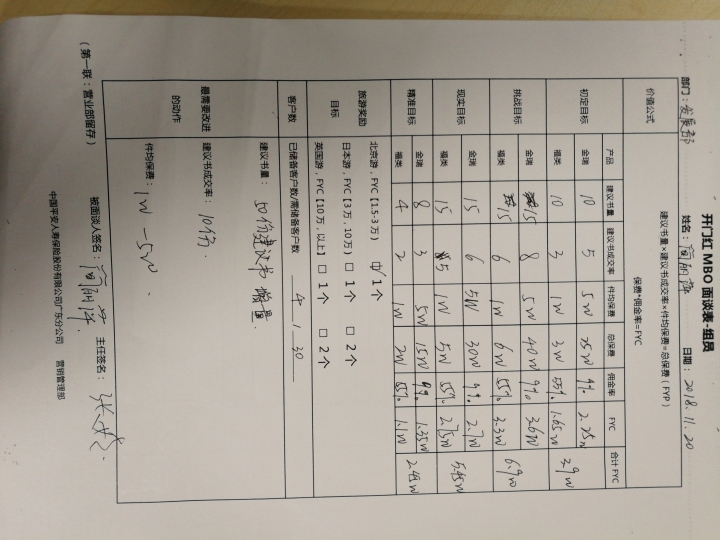 开门红 MBO 面谈表-组员
部门：发展部 姓名：简丽萍 日期：2018.11.20
价值公式 建议书量×建议书成交率×件均保费=总保费（FYP）
保费*佣金率=FYC
产品 建议书量 建议书成交率 件均保费 总保费 佣金率 FYC 合计 FYC
初定目标 金瑞 10 5 5W 25W 9% 2.25W 3.9W
福类 10 3 1W 3W 55% 1.65W
挑战目标 金瑞 15 8 5W 40W 9% 3.6W 6.9W
福类 15 6 1W 6W 55% 3.3W
现实目标 金瑞 15 6 5W 30W 9% 2.7W 5.45W
福类 15 5 1W 5W 55% 2.75W
精准目标 金瑞 8 3 5W 15W 9% 1.35W 2.45W
福类 4 2 1W 2W 55% 1.1W
旅游奖励目标 北京游，FYC【1.5-3万） ☑ 1个
日本游，FYC【3万，10万） □ 1个 □ 2个
英国游，FYC【10万，以上】 □ 1个 □ 2个
客户数 已储备客户数/需储备客户数 4 / 30
最需要改进的动作 建议书量：50份建议书
建议书成交率：10份.
件均保费：1W-5W.
被面谈人签名：简丽萍 主任签名：
（第一联：营业部留存） 中国平安人寿保险股份有限公司广东分公司 营销管理部